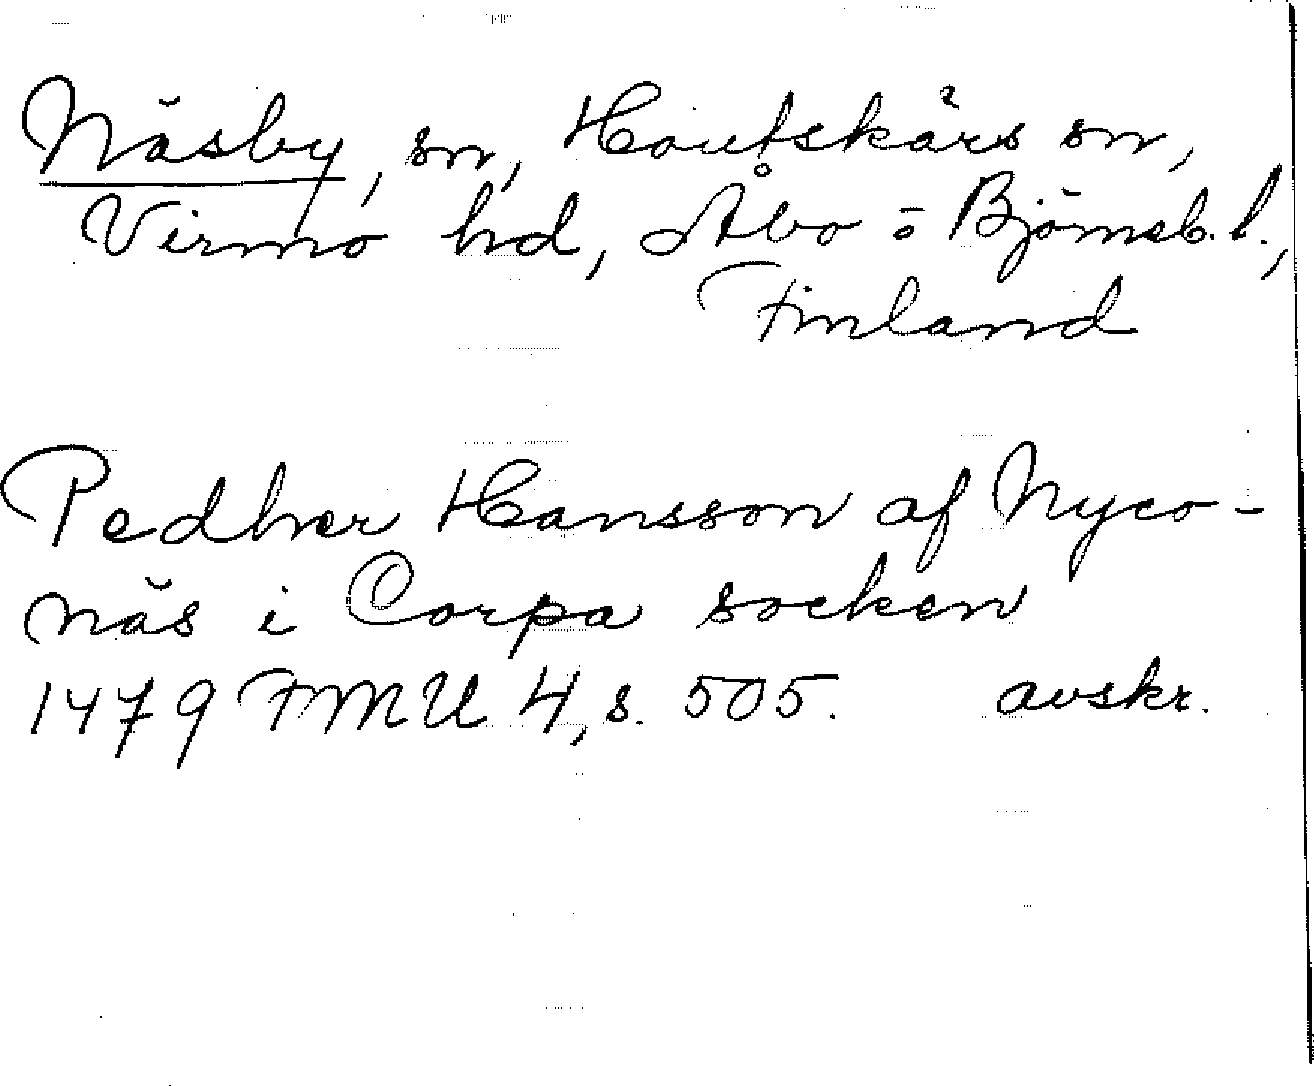 Näsby, sn, Houtskärs sn,
Virmo hd, Åbo o Björneb. l.,
Finland
Pedher Hansson af Nyco-
näs i Corpa socken
1479 FMU 4, s. 505. avskr.